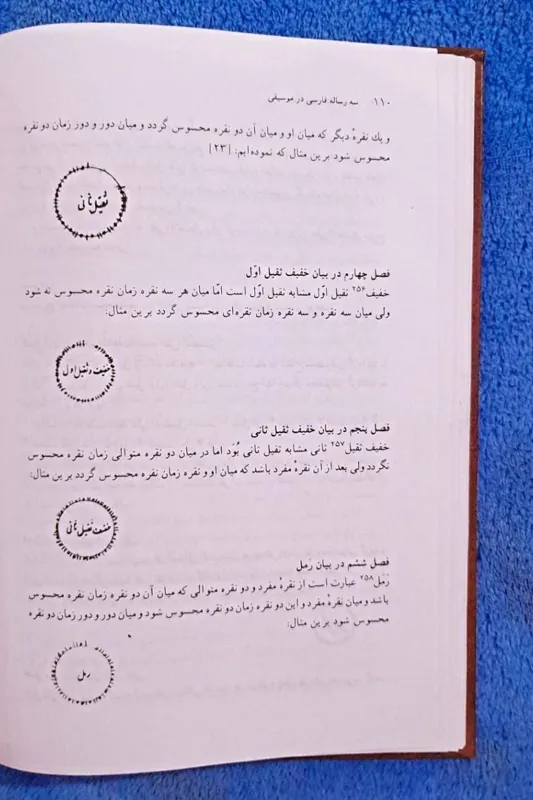 ۱۱۰ سه رساله فارسی در موسیقی
و یك نقرهٔ دیگر که میان او و میان آن دو نقره محسوس گردد و میان دور و دور زمان دو نقره
محسوس شود برین مثال که نموده‌ایم: [۲۳]
ثقیل ثانی
فصل چهارم در بیان خفیف ثقیل اوّل
خفیف۲۵۶ ثقیل اوّل مشابه ثقیل اوّل است امّا میان هر سه نقره زمان نقره محسوس نه شود
ولی میان سه نقره و سه نقره زمان نقره‌ای محسوس گردد برین مثال:
خفیف ثقیل اول
فصل پنجم در بیان خفیف ثقیل ثانی
خفیف ثقیل۲۵۷ ثانی مشابه ثقیل ثانی بُوَد اما در میان دو نقره متوالی زمان نقره محسوس
نگردد ولی بعد از آن نقرهٔ مفرد باشد که میان او و نقره زمان نقره محسوس گردد برین مثال:
خفیف ثقیل ثانی
فصل ششم در بیان رَمل
رَمَل۲۵۸ عبارت است از نقرهٔ مفرد و دو نقره متوالی که میان آن دو نقره زمان نقره محسوس
باشد و میان نقرهٔ مفرد و این دو نقره زمان دو نقره محسوس شود و میان دور و دور زمان دو نقره
محسوس شود برین مثال:
رمل